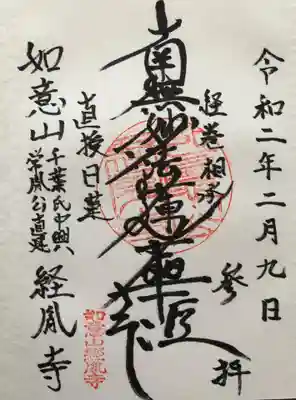 令和二年二月九日
参拝
経巻相承
南無妙法蓮華経
直授日蓮
如意山
千葉氏中興
胤公直
経胤寺
如意山經胤寺